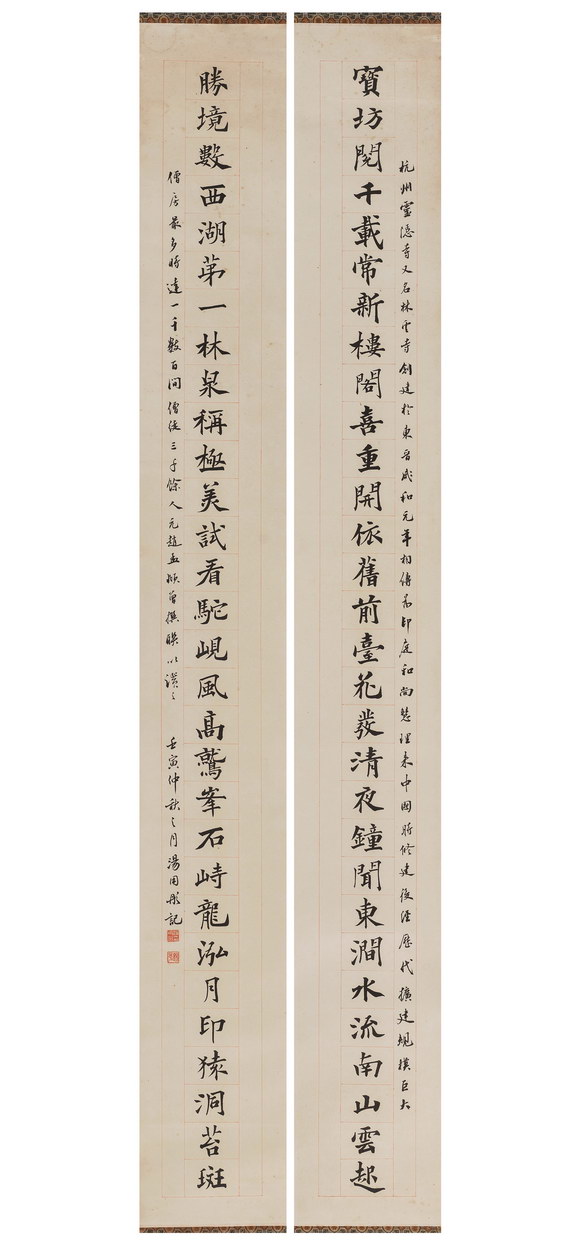 杭州靈隱寺又名林云寺創建於東晉咸和元年相傳為印度和尚慧理來中國時修建後經歷代擴建規模巨大
寶坊閱千載常新樓閣喜重開依舊前臺花發清夜鐘聞東澗水流南山雲起
勝境數西湖第一林泉稱極美試看駝峴風高鷲峯石峙龍泓月印猿洞苔斑
僧房最多時達一千數百间僧徒三千餘人元趙孟頫曾撰聯以讚之 壬寅仲秋之月湯用彤記